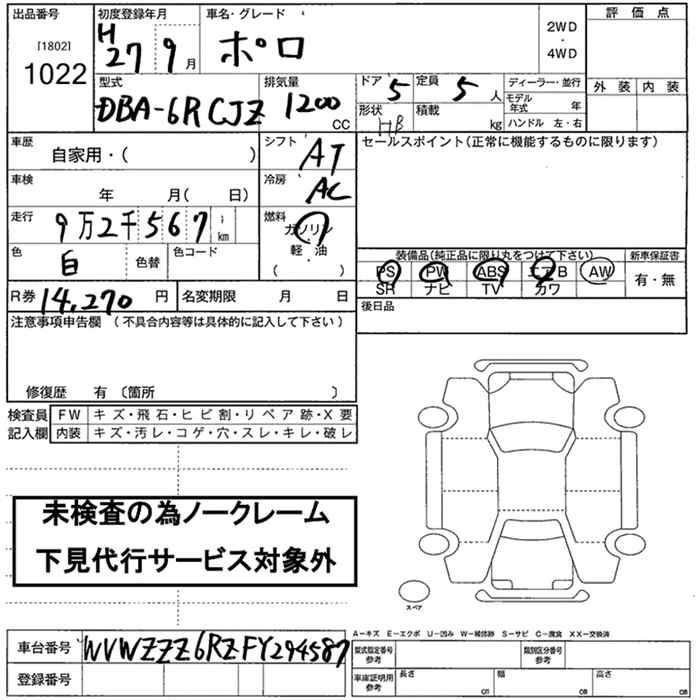 出品番号 初度登録年月 車名・グレード 評価点
[1802] H27 9月 ポロ 2WD・4WD
1022
型式 排気量 ドア 5 定員 5人 ディーラー・並行 外装 内装
DBA-6RCJZ 1200 CC 形状 HB 積載 kg モデル年式 年
ハンドル 左・右
車歴 自家用・( ) シフト AT セールスポイント(正常に機能するものに限ります)
車検 年 月( 日) 冷房 AC
走行 9万2千567 km 燃料 ガソリン
軽・油
( )
色 白 色替 色コード 装備品(純正品に限り丸をつけて下さい) 新車保証書
PS PW ABS エアB AW 有・無
SR ナビ TV カワ
R券 14,270円 名変期限 月 日 後日品
注意事項申告欄 (不具合内容等は具体的に記入して下さい)
修復歴 有 〔箇所 〕
検査員記入欄 FW キズ・飛石・ヒビ割・リペア跡・X要
内装 キズ・汚レ・コゲ・穴・スレ・キレ・破レ
未検査の為ノークレーム
下見代行サービス対象外
スペア
A-キズ E-エクボ U-凹み W-補修跡 S-サビ C-腐食 XX-交換済
車台番号 WVWZZZ6RZFY294587 型式指定番号 参考 類別区分番号 参考
登録番号 車庫証明用 参考 長さ cm 幅 cm 高さ cm